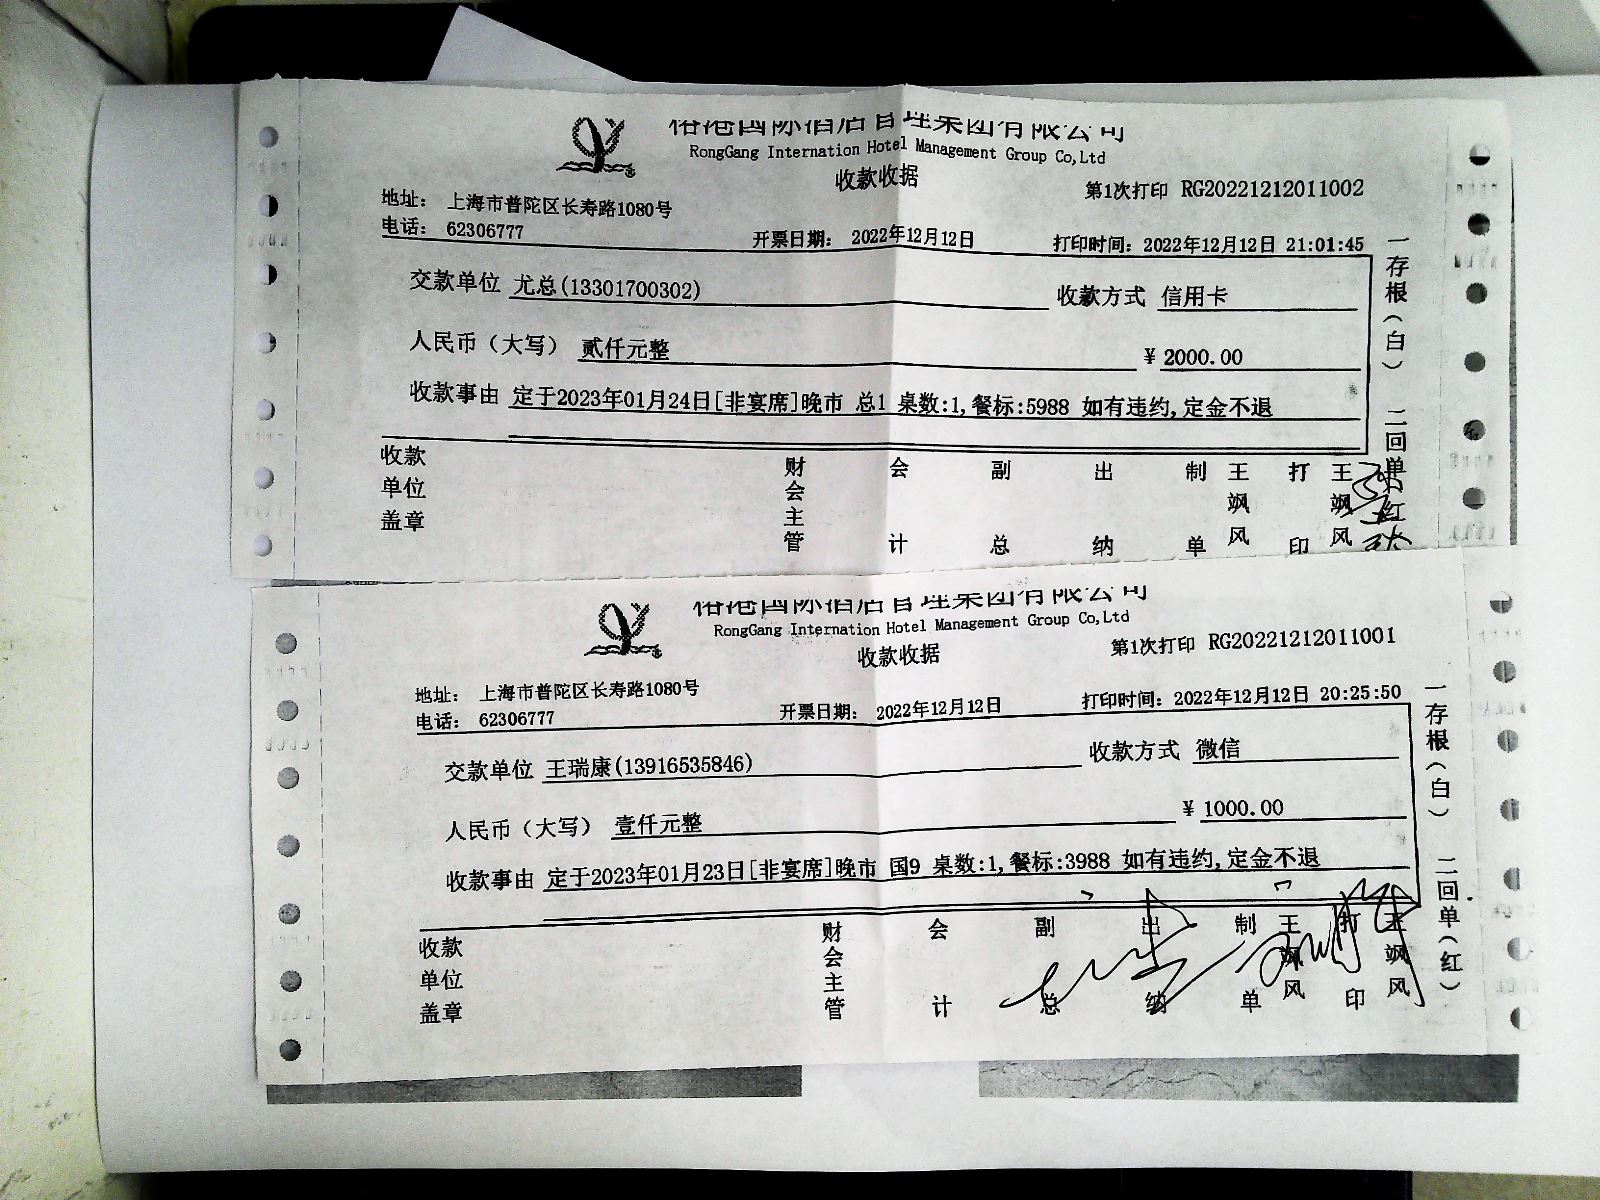 榕港国际酒店管理集团有限公司
RongGang Internation Hotel Management Group Co,Ltd
收款收据
第1次打印 RG20221212011002
地址： 上海市普陀区长寿路1080号
电话： 62306777
开票日期： 2022年12月12日
打印时间：2022年12月12日 21:01:45
交款单位 尤总(13301700302)
收款方式 信用卡
人民币（大写） 贰仟元整
¥ 2000.00
收款事由 定于2023年01月24日[非宴席]晚市 总1 桌数:1,餐标:5988 如有违约,定金不退
一存根（白） 二回单（红
收款单位盖章
财会主管
会计
副总
出纳
制单
王飒风
打印
王飒风
榕港国际酒店管理集团有限公司
RongGang Internation Hotel Management Group Co,Ltd
收款收据
第1次打印 RG20221212011001
地址： 上海市普陀区长寿路1080号
电话： 62306777
开票日期： 2022年12月12日
打印时间：2022年12月12日 20:25:50
交款单位 王瑞康(13916535846)
收款方式 微信
人民币（大写） 壹仟元整
¥ 1000.00
收款事由 定于2023年01月23日[非宴席]晚市 国9 桌数:1,餐标:3988 如有违约,定金不退
一存根（白） 二回单（红）
收款单位盖章
财会主管
会计
副总
出纳
制单
王飒风
打印
王飒风